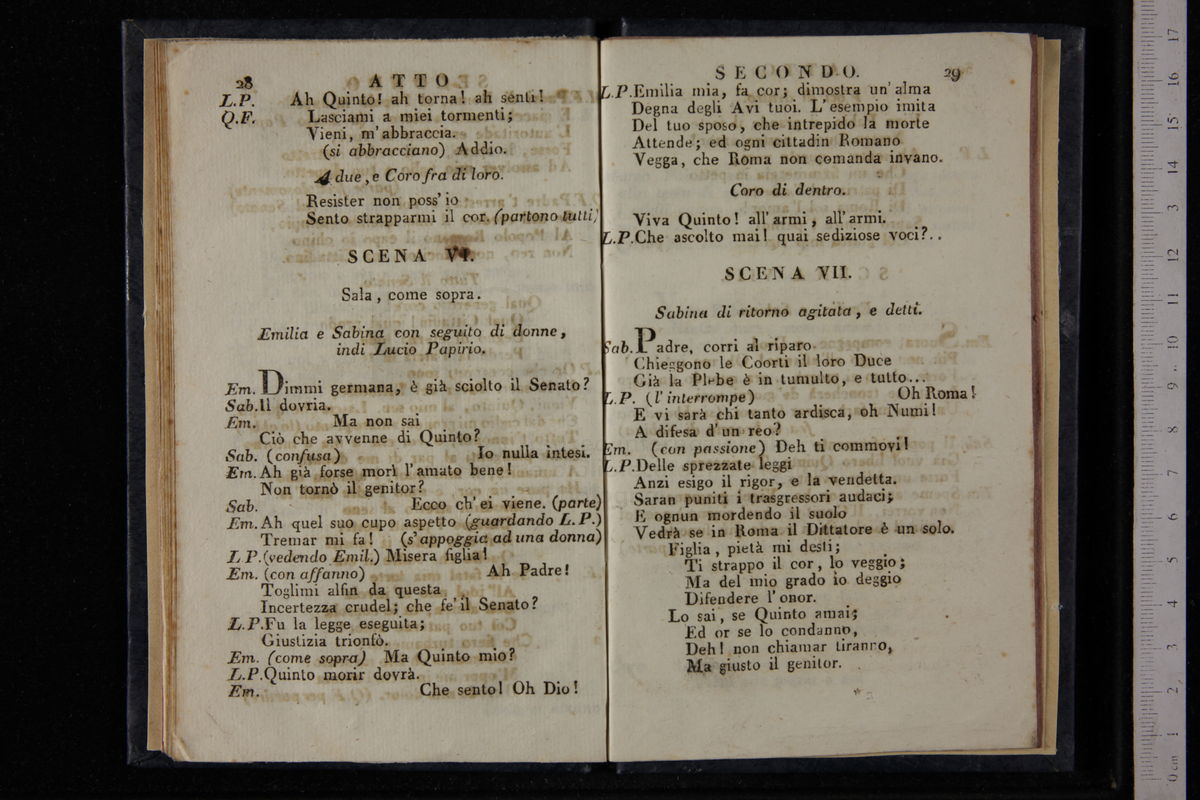 28
ATTO
L.P. Ah Quinto! ah torna! ah senti!
Q.F. Lasciami a miei tormenti;
Vieni, m'abbraccia.
(si abbracciano) Addio.
A due, e Coro fra di loro.
Resister non poss' io
Sento strapparmi il cor. (partono tutti)
SCENA VI.
Sala, come sopra.
Emilia e Sabina con seguito di donne,
indi Lucio Papirio.
Em. Dimmi germana, è già sciolto il Senato?
Sab. Il dovria.
Em. Ma non sai
Ciò che avvenne di Quinto?
Sab. (confusa) Io nulla intesi.
Em. Ah già forse morì l'amato bene!
Non tornò il genitor?
Sab. Ecco ch'ei viene. (parte)
Em. Ah quel suo cupo aspetto (guardando L.P.)
Tremar mi fa! (s'appoggia ad una donna)
L P. (vedendo Emil.) Misera figlia!
Em. (con affanno) Ah Padre!
Toglimi alfin da questa
Incertezza crudel; che fe' il Senato?
L.P. Fu la legge eseguita;
Giustizia trionfò.
Em. (come sopra) Ma Quinto mio?
L.P. Quinto morir dovrà.
Em. Che sento! Oh Dio!
SECONDO.
29
L.P. Emilia mia, fa cor; dimostra un'alma
Degna degli Avi tuoi. L'esempio imita
Del tuo sposo, che intrepido la morte
Attende; ed ogni cittadin Romano
Vegga, che Roma non comanda invano.
Coro di dentro.
Viva Quinto! all'armi, all'armi.
L.P. Che ascolto mai! quai sediziose voci?..
SCENA VII.
Sabina di ritorno agitata, e detti.
Sab. Padre, corri al riparo
Chieggono le Coorti il loro Duce
Già la Plebe è in tumulto, e tutto...
L.P. (l'interrompe) Oh Roma!
E vi sarà chi tanto ardisca, oh Numi!
A difesa d'un reo?
Em. (con passione) Deh ti commovi!
L.P. Delle sprezzate leggi
Anzi esigo il rigor, e la vendetta.
Saran puniti i trasgressori audaci;
E ognun mordendo il suolo
Vedrà se in Roma il Dittatore è un solo.
Figlia, pietà mi desti;
Ti strappo il cor, lo veggio;
Ma del mio grado io deggio
Difendere l'onor.
Lo sai, se Quinto amai;
Ed or se lo condanno,
Deh! non chiamar tiranno,
Ma giusto il genitor.
0 cm 1 2 3 4 5 6 7 8 9 10 11 12 13 14 15 16 17